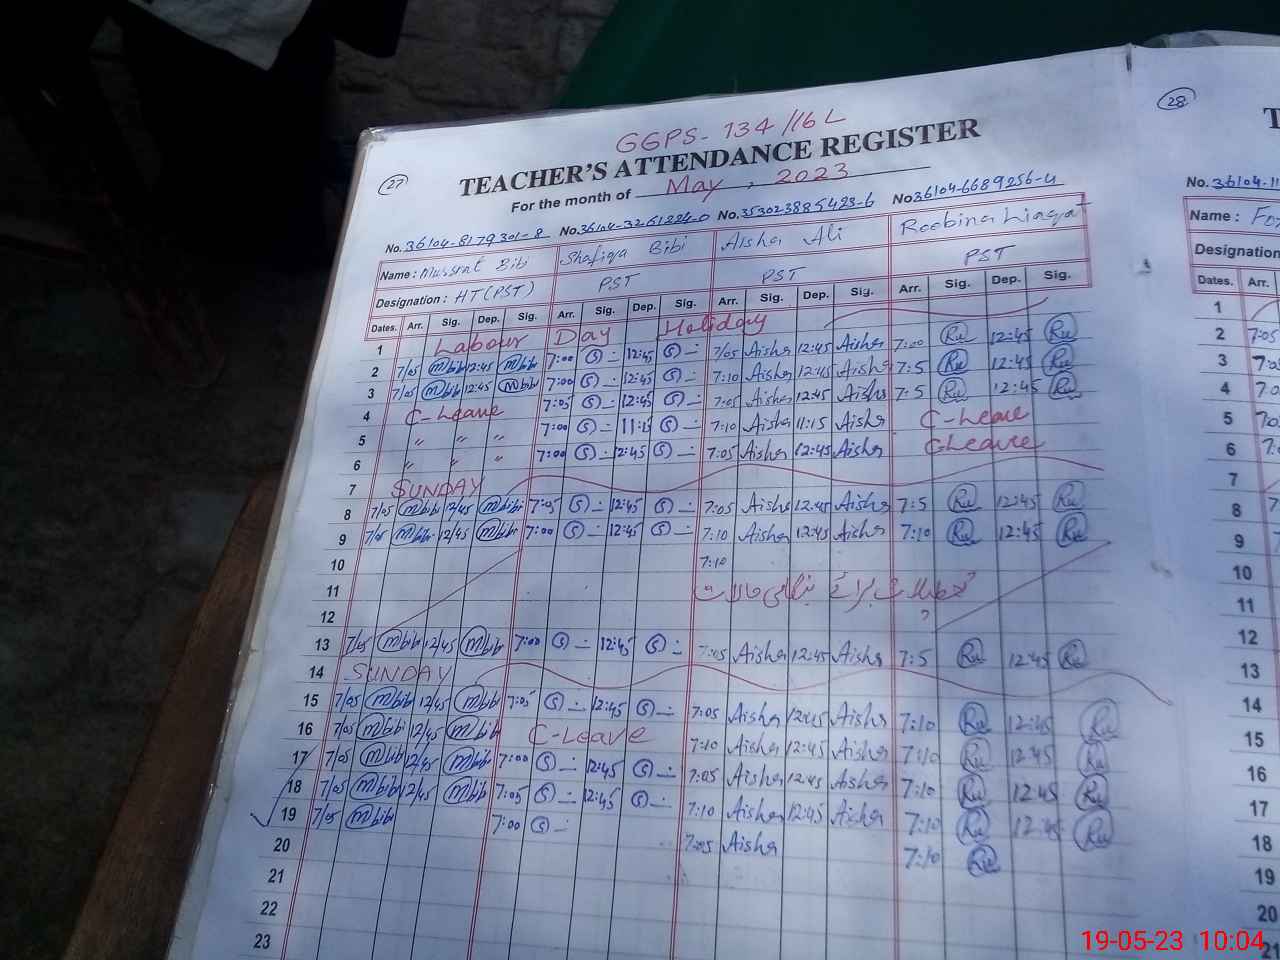 GGPS- 134/16L
27 TEACHER'S ATTENDANCE REGISTER 28
For the month of May, 2023
No. 36104-8179301-8 No. 36104-3261224-0 No. 353023885423-6 No 36104-6689256-4 No. 36104-11
Name : Mussrat Bibi Shafiqa Bibi Aisha Ali Roobina Liaqat Name :
Designation : HT(PST) PST PST PST Designation
Dates. Arr. Sig. Dep. Sig. Arr. Sig. Dep. Sig. Arr. Sig. Dep. Sig. Arr. Sig. Dep. Sig. Dates. Arr.
1 Labour Day Holiday 1
2 7/05 Mbibi 12:45 Mbibi 7:00 S 12:45 S 7/05 Aisha 12:45 Aisha 7:00 Ru 12:45 Ru 2 7:05
3 7/05 Mbibi 12:45 Mbibi 7:00 S 12:45 S 7:10 Aisha 12:45 Aisha 7:5 Ru 12:45 Ru 3
4 C-Leave 7:05 S 12:45 S 7:05 Aisha 12:45 Aisha 7:5 Ru 12:45 Ru 4
5 " " " 7:00 S 11:15 S 7:10 Aisha 11:15 Aisha C-Leave 5
6 " " " 7:00 S 12:45 S 7:05 Aisha 12:45 Aisha C-Leave 6
7 SUNDAY 7
8 7/05 Mbibi 12/45 Mbibi 7:05 S 12:45 S 7:05 Aisha 12:45 Aisha 7:5 Ru 12:45 Ru 8
9 7/05 Mbibi 12/45 Mbibi 7:00 S 12:45 S 7:10 Aisha 12:45 Aisha 7:10 Ru 12:45 Ru 9
10 7:10 10
11 11
12 12
13 7/05 Mbibi 12/45 Mbibi 7:00 S 12:45 S 7:05 Aisha 12:45 Aisha 7:5 Ru 12:45 Ru 13
14 SUNDAY 14
15 7/05 Mbibi 12/45 Mbibi 7:05 S 12:45 S 7:05 Aisha 12:45 Aisha 7:10 Ru 12:45 Ru 15
16 7/05 Mbibi 12/45 Mbibi C-Leave 7:10 Aisha 12:45 Aisha 7:10 Ru 12:45 Ru 16
17 7/05 Mbibi 12/45 Mbibi 7:00 S 12:45 S 7:05 Aisha 12:45 Aisha 7:10 Ru 12:45 Ru 17
18 7/05 Mbibi 12/45 Mbibi 7:05 S 12:45 S 7:10 Aisha 12:45 Aisha 7:10 Ru 12:45 Ru 18
19 7/05 Mbibi 7:00 S 7:05 Aisha 7:10 Ru 19
20 20
21 21
22
23
19-05-23 10:04